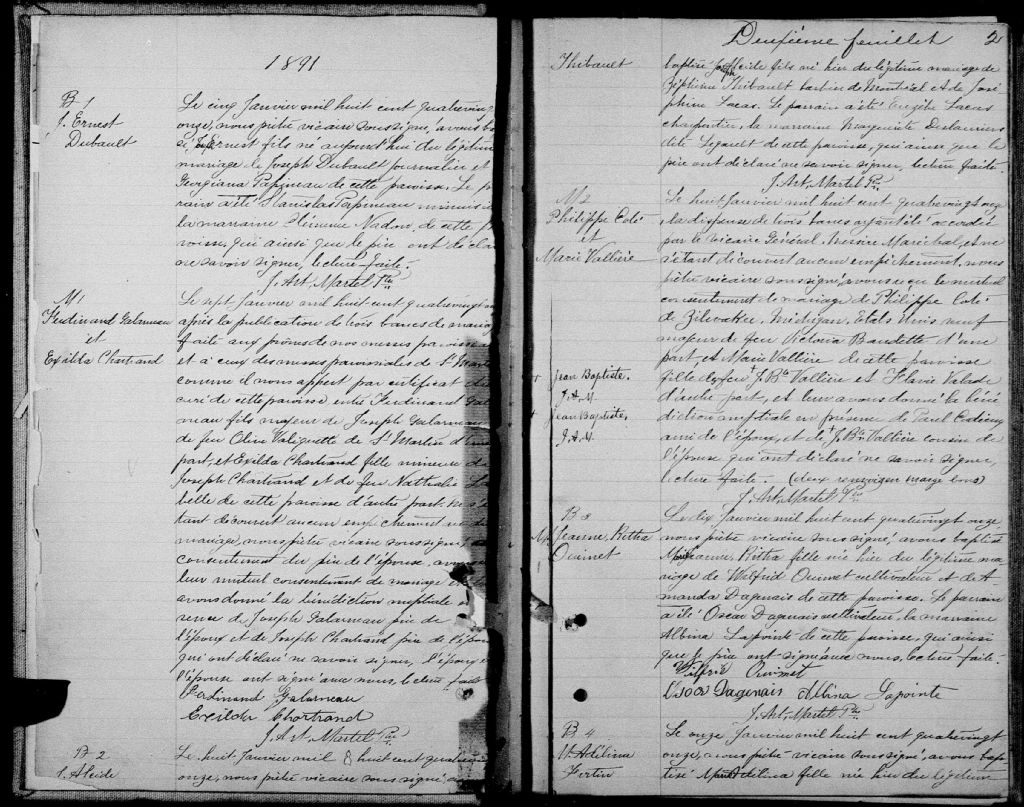 1891
B 1
J. Ernest
Dubault
Le cinq Janvier mil huit cent quatrevingt
onze, nous prêtre vicaire soussigné, avons bap
Ernest fils né aujourd'hui du légitime
mariage de Joseph Dubault journalier et
Georgiana Papineau de cette paroisse. Le p
rain a été Stanislas Papineau
la marraine Clémence Nadon, de cette p
roisse, qui ainsi que le père ont déclar
ne savoir signer, lecture faite.
J. Art. Martel Ptre
M 1
Ferdinand Galarneau
et
Exilda Chartrand
Le sept Janvier mil huit cent quatrevingt
après la publication de trois bancs de maria
faite aux prônes de nos messes paroissia
et à ceux des messes paroissiales de St Mart
comme il nous appert par certificat du
curé de cette paroisse entre Ferdinand Gala
neau fils majeur de Joseph Galarneau
de feu Olive Valiquette de St Martin d'une
part, et Exilda Chartrand fille mineure de
Joseph Chartrand et de feu Nathalie La
belle de cette paroisse d'autre part. ne s'é
tant découvert aucun empêchement au dit
mariage, nous prêtre vicaire soussigné,
consentement du père de l'épouse, avons
leur mutuel consentement de mariage et
avons donné la bénédiction nuptiale en
sence de Joseph Galarneau père de
l'époux et de Joseph Chartrand père de l'épou
qui ont déclaré ne savoir signer, l'époux et
l'épouse ont signé avec nous, lecture faite
Ferdinand Galarneau
Exilda Chartrand
J. Art. Martel Ptre
B 2
J. Alcide
Le huit Janvier mil huit cent quatrevin
onze, nous prêtre vicaire soussigné, av
Deuxième feuillet 2
Thibault
baptisé Jos. Alcide fils né hier du légitime mariage de
Zéphirin Thibault bartier de Montréal et de José
phine Lacas. Le parrain a été Euzèbe Lacas
charpentier, la marraine Marguerite Deslauriers
dite Legault de cette paroisse, qui ainsi que le
père ont déclaré ne savoir signer, lecture faite.
J. Art. Martel Ptre
M 2
Philippe Coté
et
Marie Vallière
Le huit Janvier mil huit cent quatrevingt onze
la dispense de trois bancs ayant été accordée
par le vicaire Général, Messire Maréchal, et ne
s'étant découvert aucun empêchement, nous
prêtre vicaire soussigné, avons reçu le mutuel
consentement de mariage de Philippe Coté
de Zilwakee, Michigan, Etats Unis veuf
majeur de feu Victoria Baudette d'une
part, et Marie Vallière de cette paroisse
fille de feu + J. Bte Vallière et Flavie Valade
d'autre part, et leur avons donné la béné
diction nuptiale en présence de Paul
ami de l'époux, et de + J. Bte Vallière cousin de
l'épouse qui ont déclaré ne savoir signer,
lecture faite. (deux renvois en marge bons)
J. Art. Martel Ptre
Jean Baptiste.
J. A. M.
Jean Baptiste.
J. A. M.
B 3
M. Jeanne Ritha
Ouimet
Le dix Janvier mil huit cent quatrevingt onze
nous prêtre vicaire soussigné, avons baptisé
Marie Jeanne Ritha fille née hier du légitime ma
riage de Wilfrid Ouimet cultivateur et de A
manda Dagenais de cette paroisse. Le parrain
a été Oscar Dagenais cultivateur, la marraine
Albina Lapointe de cette paroisse, qui ainsi
que le père ont signé avec nous, lecture faite.
Wilfrid Ouimet
Oscar Dagenais Albina Lapointe
J. Art. Martel Ptre
B 4
M. Adélina
Fortin
Le onze Janvier mil huit cent quatrevingt
onze, nous prêtre vicaire soussigné, avons bap
tisé Marie Adélina fille née hier du légitime